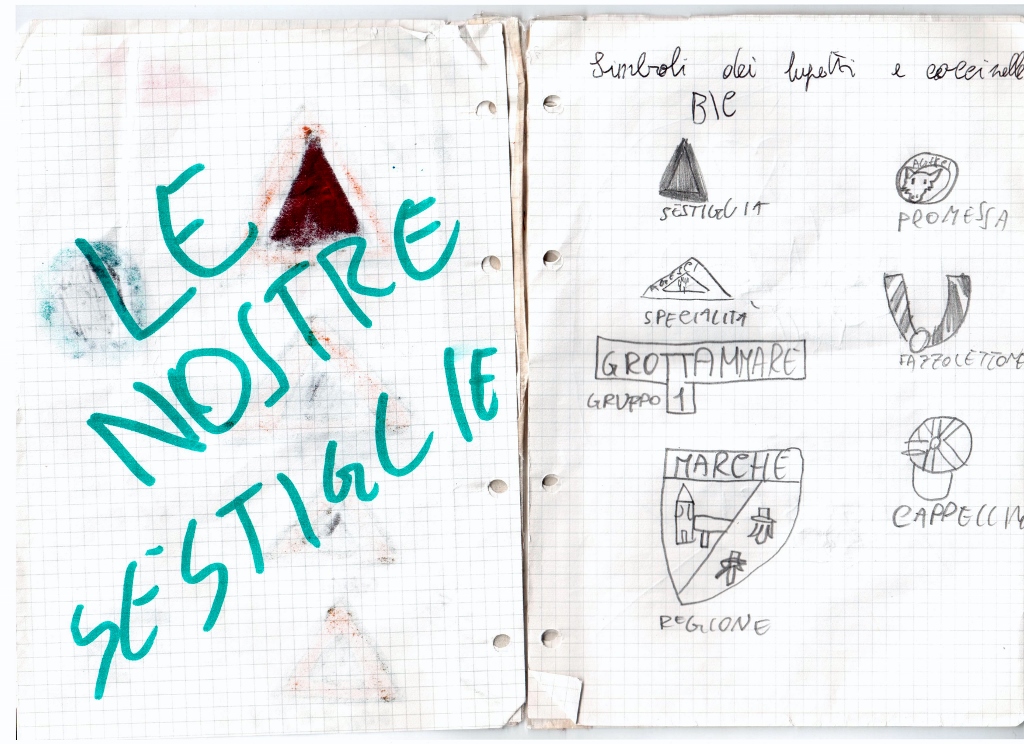 LE
NOSTRE
SESTIGLIE
Simboli dei lupetti e coccinelle
B/C
SESTIGLIA
PROMESSA
SPECIALITÀ
FAZZOLETTONE
GROTTAMMARE
GRUPPO 1
MARCHE
CAPPELLIN
REGIONE